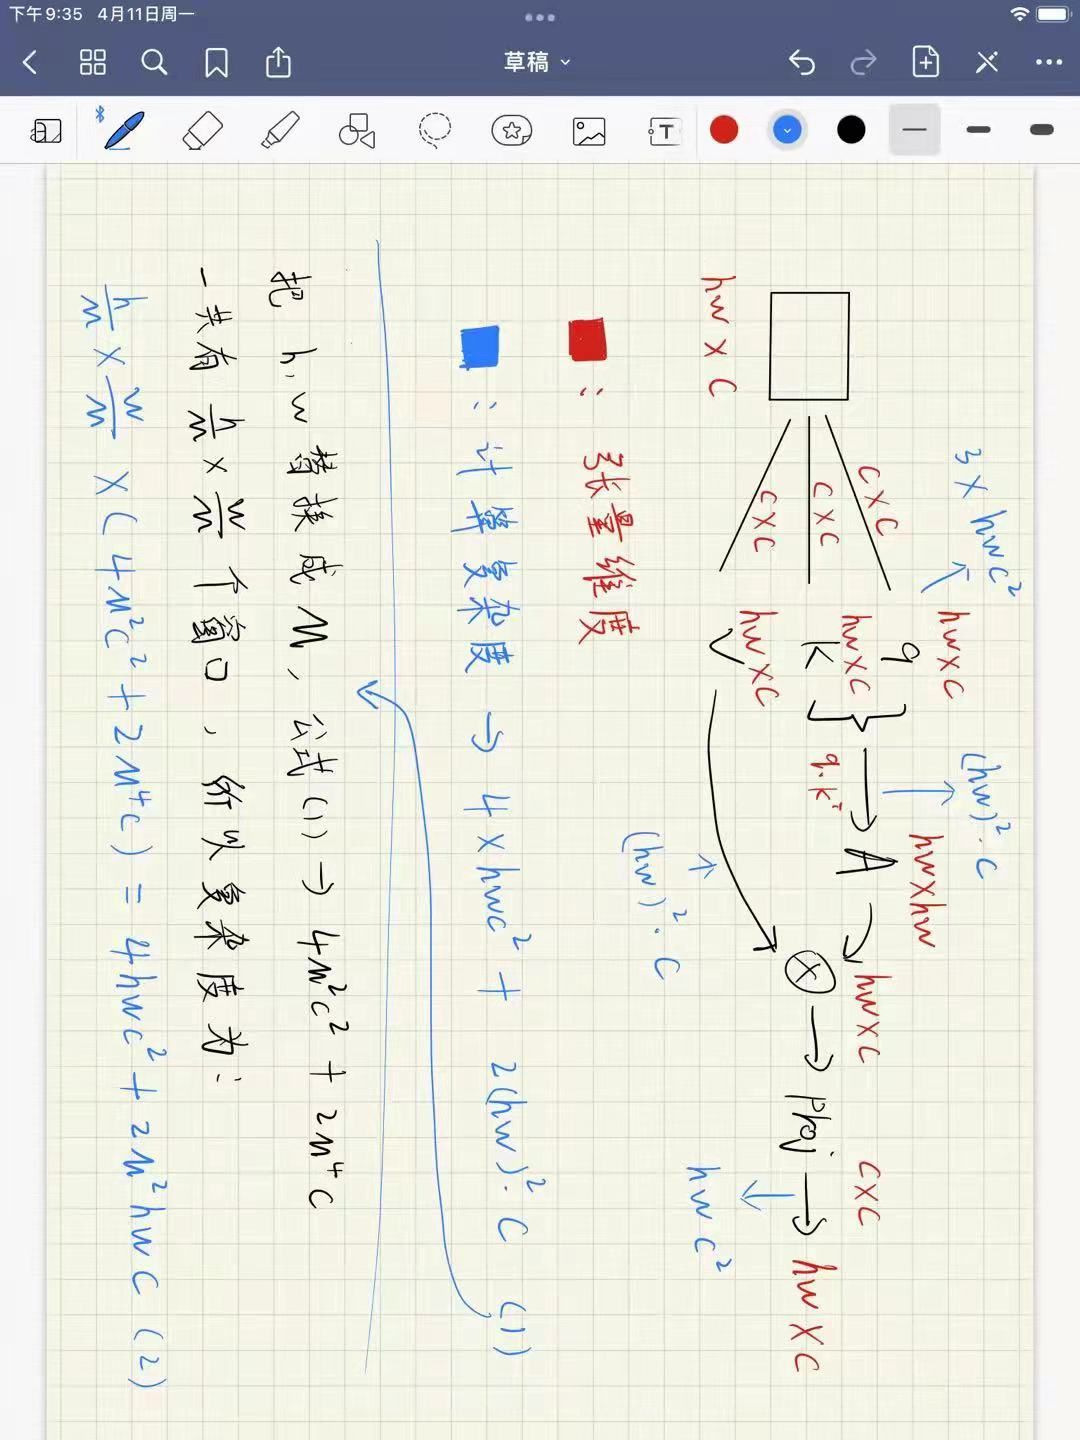 3 × hwc²
hw×c
(hw)²·c
hw×hw
q
c×c
hw×c
A
hw×c
c×c
c×c
k
q·kᵀ
×
proj
hw×c
c×c
hw×c
hw×c
v
hwc²
(hw)²·c
: 张量维度
: 计算复杂度 → 4×hwc² + 2(hw)²·c (1)
把 h,w 替换成 M, 公式(1) → 4M²c² + 2M⁴c
一共有 h/M × w/M 个窗口, 所以复杂度为:
h/M × w/M × (4M²c² + 2M⁴c) = 4hwc² + 2M²hwc (2)
草稿
下午9:35 4月11日周一
T